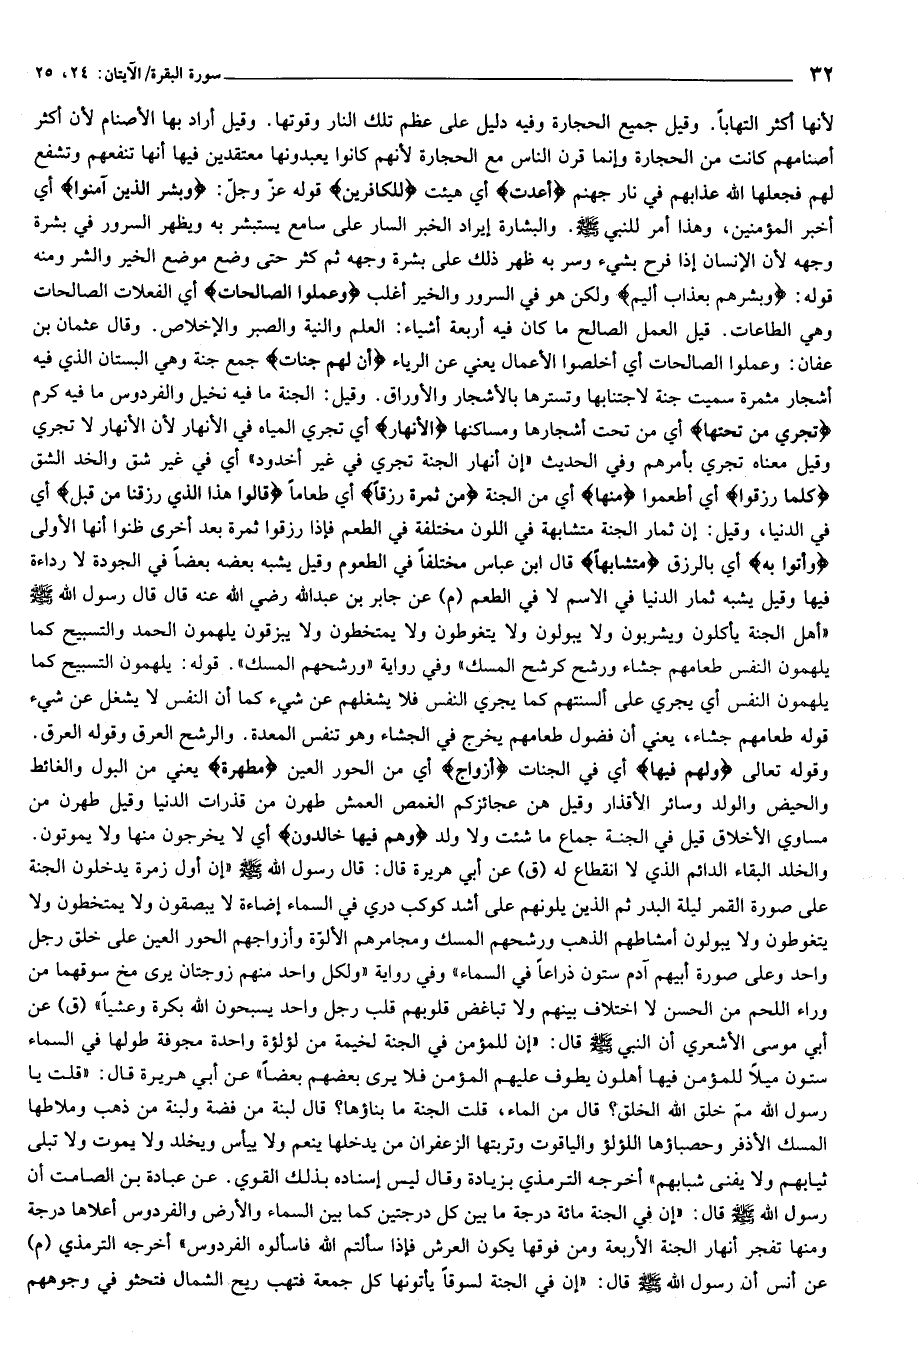 ٣٢ سورة البقرة/ الآيتان: ٢٤، ٢٥
لأنها أكثر التهاباً. وقيل جميع الحجارة وفيه دليل على عظم تلك النار وقوتها. وقيل أراد بها الأصنام لأن أكثر
أصنامهم كانت من الحجارة وإنما قرن الناس مع الحجارة لأنهم كانوا يعبدونها معتقدين فيها أنها تنفعهم وتشفع
لهم فجعلها الله عذابهم في نار جهنم ﴿أعدت﴾ أي هيئت ﴿للكافرين﴾ قوله عزّ وجلّ: ﴿وبشر الذين آمنوا﴾ أي
أخبر المؤمنين، وهذا أمر للنبي ﷺ. والبشارة إيراد الخبر السار على سامع يستبشر به ويظهر السرور في بشرة
وجهه لأن الإنسان إذا فرح بشيء وسر به ظهر ذلك على بشرة وجهه ثم كثر حتى وضع موضع الخير والشر ومنه
قوله: ﴿وبشرهم بعذاب أليم﴾ ولكن هو في السرور والخير أغلب ﴿وعملوا الصالحات﴾ أي الفعلات الصالحات
وهي الطاعات. قيل العمل الصالح ما كان فيه أربعة أشياء: العلم والنية والصبر والإخلاص. وقال عثمان بن
عفان: وعملوا الصالحات أي أخلصوا الأعمال يعني عن الرياء ﴿أن لهم جنات﴾ جمع جنة وهي البستان الذي فيه
أشجار مثمرة سميت جنة لاجتنابها وتسترها بالأشجار والأوراق. وقيل: الجنة ما فيه نخيل والفردوس ما فيه كرم
﴿تجري من تحتها﴾ أي من تحت أشجارها ومساكنها ﴿الأنهار﴾ أي تجري المياه في الأنهار لأن الأنهار لا تجري
وقيل معناه تجري بأمرهم وفي الحديث «إن أنهار الجنة تجري في غير أخدود» أي في غير شق والخد الشق
﴿كلما رزقوا﴾ أي أطعموا ﴿منها﴾ أي من الجنة ﴿من ثمرة رزقاً﴾ أي طعاماً ﴿قالوا هذا الذي رزقنا من قبل﴾ أي
في الدنيا، وقيل: إن ثمار الجنة متشابهة في اللون مختلفة في الطعم فإذا رزقوا ثمرة بعد أخرى ظنوا أنها الأولى
﴿وأتوا به﴾ أي بالرزق ﴿متشابهاً﴾ قال ابن عباس مختلفاً في الطعوم وقيل يشبه بعضه بعضاً في الجودة لا رداءة
فيها وقيل يشبه ثمار الدنيا في الاسم لا في الطعم (م) عن جابر بن عبدالله رضي الله عنه قال قال رسول الله ﷺ
«أهل الجنة يأكلون ويشربون ولا يبولون ولا يتغوطون ولا يمتخطون ولا يبزقون يلهمون الحمد والتسبيح كما
يلهمون النفس طعامهم جشاء ورشح كرشح المسك» وفي رواية «ورشحهم المسك». قوله: يلهمون التسبيح كما
يلهمون النفس أي يجري على ألسنتهم كما يجري النفس فلا يشغلهم عن شيء كما أن النفس لا يشغل عن شيء
قوله طعامهم جشاء، يعني أن فضول طعامهم يخرج في الجشاء وهو تنفس المعدة. والرشح العرق وقوله العرق.
وقوله تعالى ﴿ولهم فيها﴾ أي في الجنات ﴿أزواج﴾ أي من الحور العين ﴿مطهرة﴾ يعني من البول والغائط
والحيض والولد وسائر الأقذار وقيل هن عجائزكم الغمص العمش طهرن من قذرات الدنيا وقيل طهرن من
مساوي الأخلاق قيل في الجنة جماع ما شئت ولا ولد ﴿وهم فيها خالدون﴾ أي لا يخرجون منها ولا يموتون.
والخلد البقاء الدائم الذي لا انقطاع له (ق) عن أبي هريرة قال: قال رسول الله ﷺ «إن أول زمرة يدخلون الجنة
على صورة القمر ليلة البدر ثم الذين يلونهم على أشد كوكب دري في السماء إضاءة لا يبصقون ولا يمتخطون ولا
يتغوطون ولا يبولون أمشاطهم الذهب ورشحهم المسك ومجامرهم الألوّة وأزواجهم الحور العين على خلق رجل
واحد وعلى صورة أبيهم آدم ستون ذراعاً في السماء» وفي رواية «ولكل واحد منهم زوجتان يرى مخ سوقهما من
وراء اللحم من الحسن لا اختلاف بينهم ولا تباغض قلوبهم قلب رجل واحد يسبحون الله بكرة وعشياً» (ق) عن
أبي موسى الأشعري أن النبي ﷺ قال: «إن للمؤمن في الجنة لخيمة من لؤلؤة واحدة مجوفة طولها في السماء
ستون ميلاً للمؤمن فيها أهلون يطوف عليهم المؤمن فلا يرى بعضهم بعضاً» عن أبي هريرة قال: «قلت يا
رسول الله ممّ خلق الله الخلق؟ قال من الماء، قلت الجنة ما بناؤها؟ قال لبنة من فضة ولبنة من ذهب وملاطها
المسك الأذفر وحصباؤها اللؤلؤ والياقوت وتربتها الزعفران من يدخلها ينعم ولا ييأس ويخلد ولا يموت ولا تبلى
ثيابهم ولا يفنى شبابهم» أخرجه الترمذي بزيادة وقال ليس إسناده بذلك القوي. عن عبادة بن الصامت أن
رسول الله ﷺ قال: «إن في الجنة مائة درجة ما بين كل درجتين كما بين السماء والأرض والفردوس أعلاها درجة
ومنها تفجر أنهار الجنة الأربعة ومن فوقها يكون العرش فإذا سألتم الله فاسألوه الفردوس» أخرجه الترمذي (م)
عن أنس أن رسول الله ﷺ قال: «إن في الجنة لسوقاً يأتونها كل جمعة فتهب ريح الشمال فتحثو في وجوههم